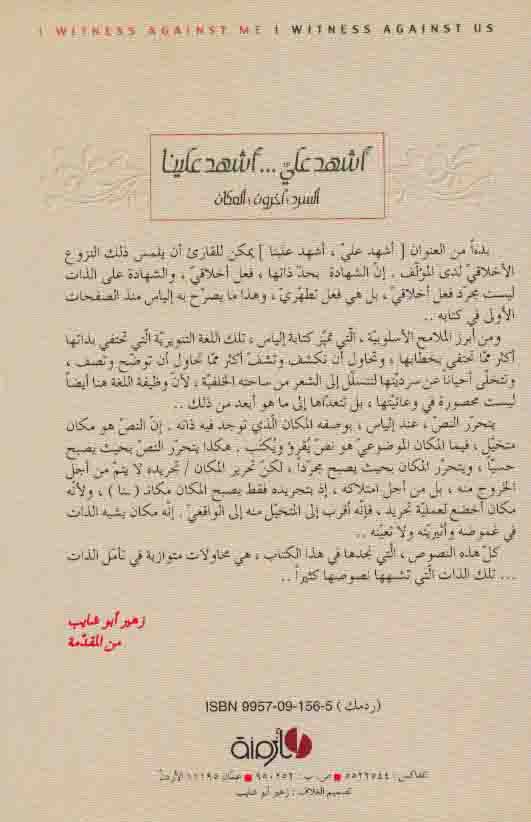 I WITNESS AGAINST ME I WITNESS AGAINST US
أشهد عليّ ... أشهد علينا
السرد، آخرون، المكان
بدءاً من العنوان [ أشهد عليّ ، أشهد علينا ] يمكن للقارئ أن يلمس ذلك النزوع
الأخلاقيّ لدى المؤلّف. إنّ الشهادة بحدّ ذاتها ، فعل أخلاقيّ ، والشهادة على الذات
ليست مجرّد فعل أخلاقيّ ، بل هي فعل تطهّريّ ، وهذا ما يصرّح به إلياس منذ الصفحات
الأولى في كتابه ..
ومن أبرز الملامح الأسلوبيّة ، الّتي تميّز كتابة إلياس ، تلك اللغة التنويريّة الّتي تحتفي بذاتها
أكثر ممّا تحتفي بخطابها ، وتحاول أن تكشف وتشفّ أكثر ممّا تحاول أن توضّح وتصف ،
وتتخلّى أحياناً عن سرديّتها لتتسلّل إلى الشعر من ساحته الخلفيّة ، لأنّ وظيفة اللغة هنا أيضاً
ليست محصورة في وعائيّتها ، بل تتعدّاها إلى ما هو أبعد من ذلك ..
يتحرّر النصّ ، عند إلياس ، بوصفه المكان الّذي توجد فيه ذاته . إنّ النصّ هو مكان
متخيّل ، فيما المكان الموضوعيّ هو نصّ يُقرؤ ويُكتب . هكذا يتحرّر النصّ بحيث يصبح
حسيّاً ، ويتحرّر المكان بحيث يصبح مجرّداً ، لكنّ تحرير المكان / تجريده لا يتمّ من أجل
الخروج منه ، بل من أجل امتلاكه ، إذ بتجريده فقط يصبح المكان مكانـ ( ـنا ) ، ولأنّه
مكان أخضع لعمليّة تجريد ، فإنّه أقرب إلى المتخيّل منه إلى الواقعيّ . إنّه مكان يشبه الذات
في غموضه وأثيريّته ولا تعيّنه ..
كلّ هذه النصوص ، الّتي نجدها في هذا الكتاب ، هي محاولات متوازية في تأمّل الذات
... تلك الذات الّتي تشبهها نصوصها كثيراً ..
زهير أبو شايب
من المقدّمة
ISBN 9957-09-156-5 ( ردمك )
أزمنة
تلفاكس : ٥٥٢٢٥٤٤ ■ ص.ب : ٩٥٠٢٥٢ ■ عمّان ١١١٩٥ الأردنّ
تصميم الغلاف : زهير أبو شايب